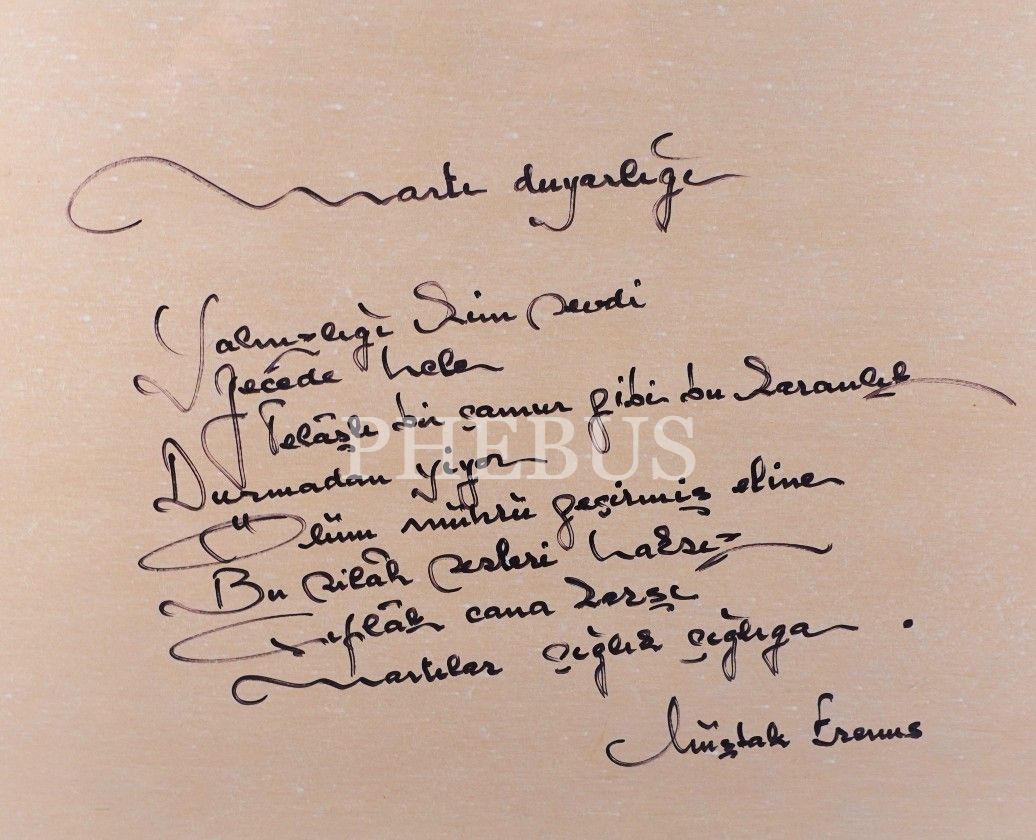 Martı duyarlığı
Yalnızlığı kim sevdi
Gecede hele
Telâşlı bir çamur gibi bu karanlık
PHEBUS
Durmadan yiyor
Ölüm mührü geçirmiş eline
Bu silâh sesleri haksız
Çıplâk cana karşı
Martılar çığlık çığlığa .
Müştak Erenus